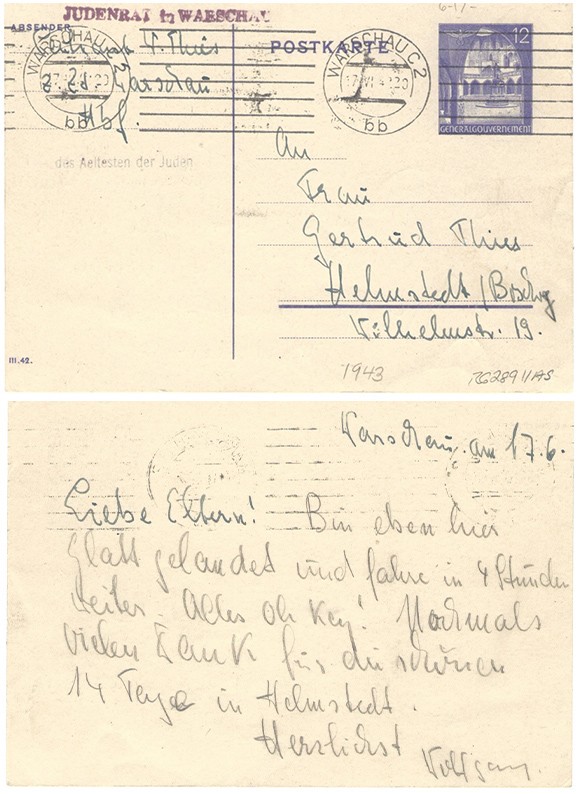 JUDENRAT in WARSCHAU
6-17-
ABSENDER
POSTKARTE
12
GENERALGOUVERNEMENT
WARSCHAU C 2
bb
W. Thies
Warschau
Hbf.
WARSCHAU C 2
bb
des Aeltesten der Juden
An
Frau
Gertrud Thies
Helmstedt/Bschwg
Wilhelmstr. 19.
III.42.
1943
RG2891/AS
Warschau, am 17.6.
Liebe Eltern! Bin eben hier
glatt gelandet und fahre in 4 Stunden
weiter. Alles oh key! Nochmals
vielen Dank für die schönen
14 Tage in Helmstedt.
Herzlichst
Wolfgang.